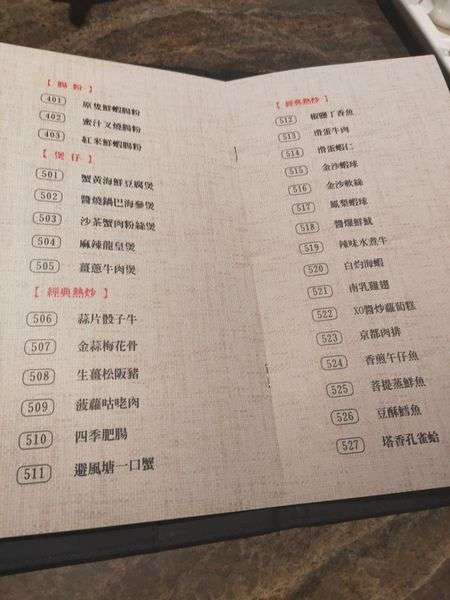 【腸粉】
401 原隻鮮蝦腸粉
402 蜜汁叉燒腸粉
403 紅米鮮蝦腸粉
【煲仔】
501 蟹黃海鮮豆腐煲
502 醬燒鍋巴海參煲
503 沙茶蟹肉粉絲煲
504 麻辣龍皇煲
505 薑蔥牛肉煲
【經典熱炒】
506 蒜片骰子牛
507 金蒜梅花骨
508 生薑松阪豬
509 菠蘿咕咾肉
510 四季肥腸
511 避風塘一口蟹
【經典熱炒】
512 椒鹽丁香魚
513 滑蛋牛肉
514 滑蛋蝦仁
515 金沙蝦球
516 金沙軟絲
517 鳳梨蝦球
518 醬爆鮮魷
519 辣味水煮牛
520 白灼海蝦
521 南乳雞翅
522 XO醬炒蘿蔔糕
523 京都肉排
524 香煎午仔魚
525 菩提蒸鮮魚
526 豆酥鱈魚
527 塔香孔雀蛤